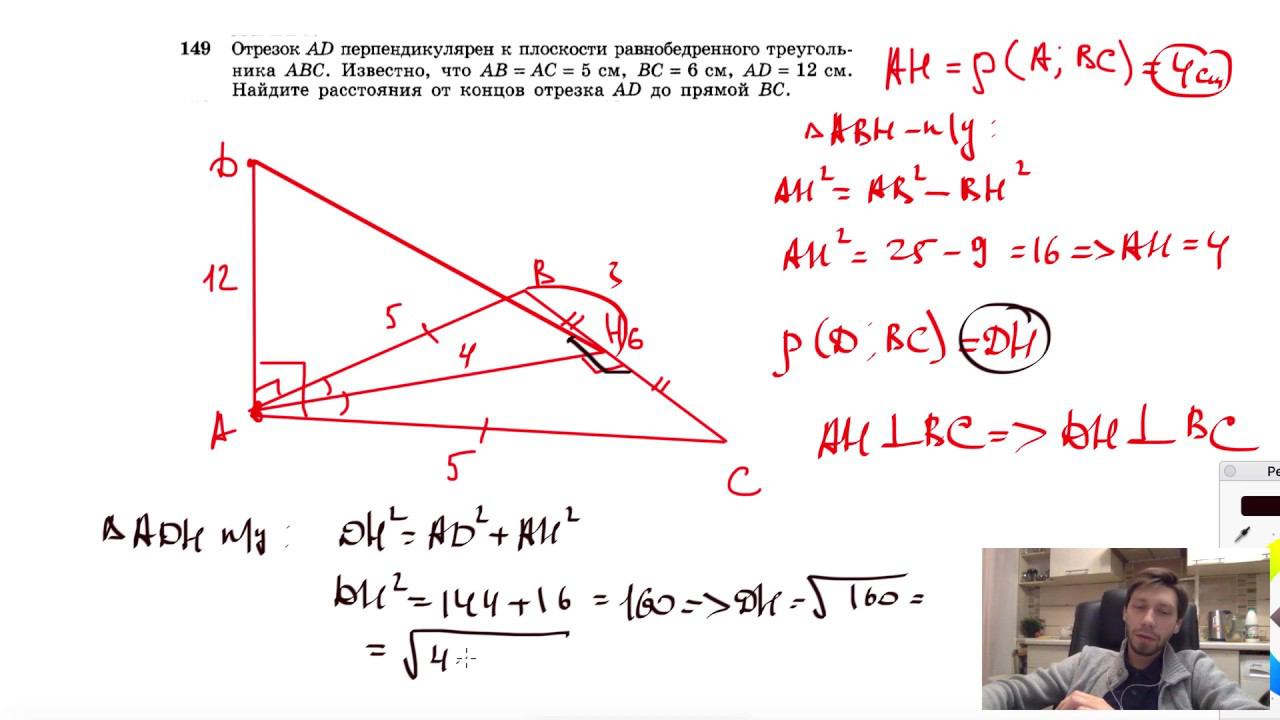 149 Отрезок AD перпендикулярен к плоскости равнобедренного треуголь-
ника ABC. Известно, что AB = AC = 5 см, BC = 6 см, AD = 12 см.
Найдите расстояния от концов отрезка AD до прямой BC.
AH = ρ(A; BC) = 4 см
△ABH – п/у :
AH² = AB² – BH²
AH² = 25 – 9 = 16 => AH = 4
ρ(D; BC) = DH
AH ⊥ BC => DH ⊥ BC
D
12
A
5
4
B
3
H
6
5
C
△ADH п/у : DH² = AD² + AH²
DH² = 144 + 16 = 160 => DH = √160 =
= √4 ·
Pe